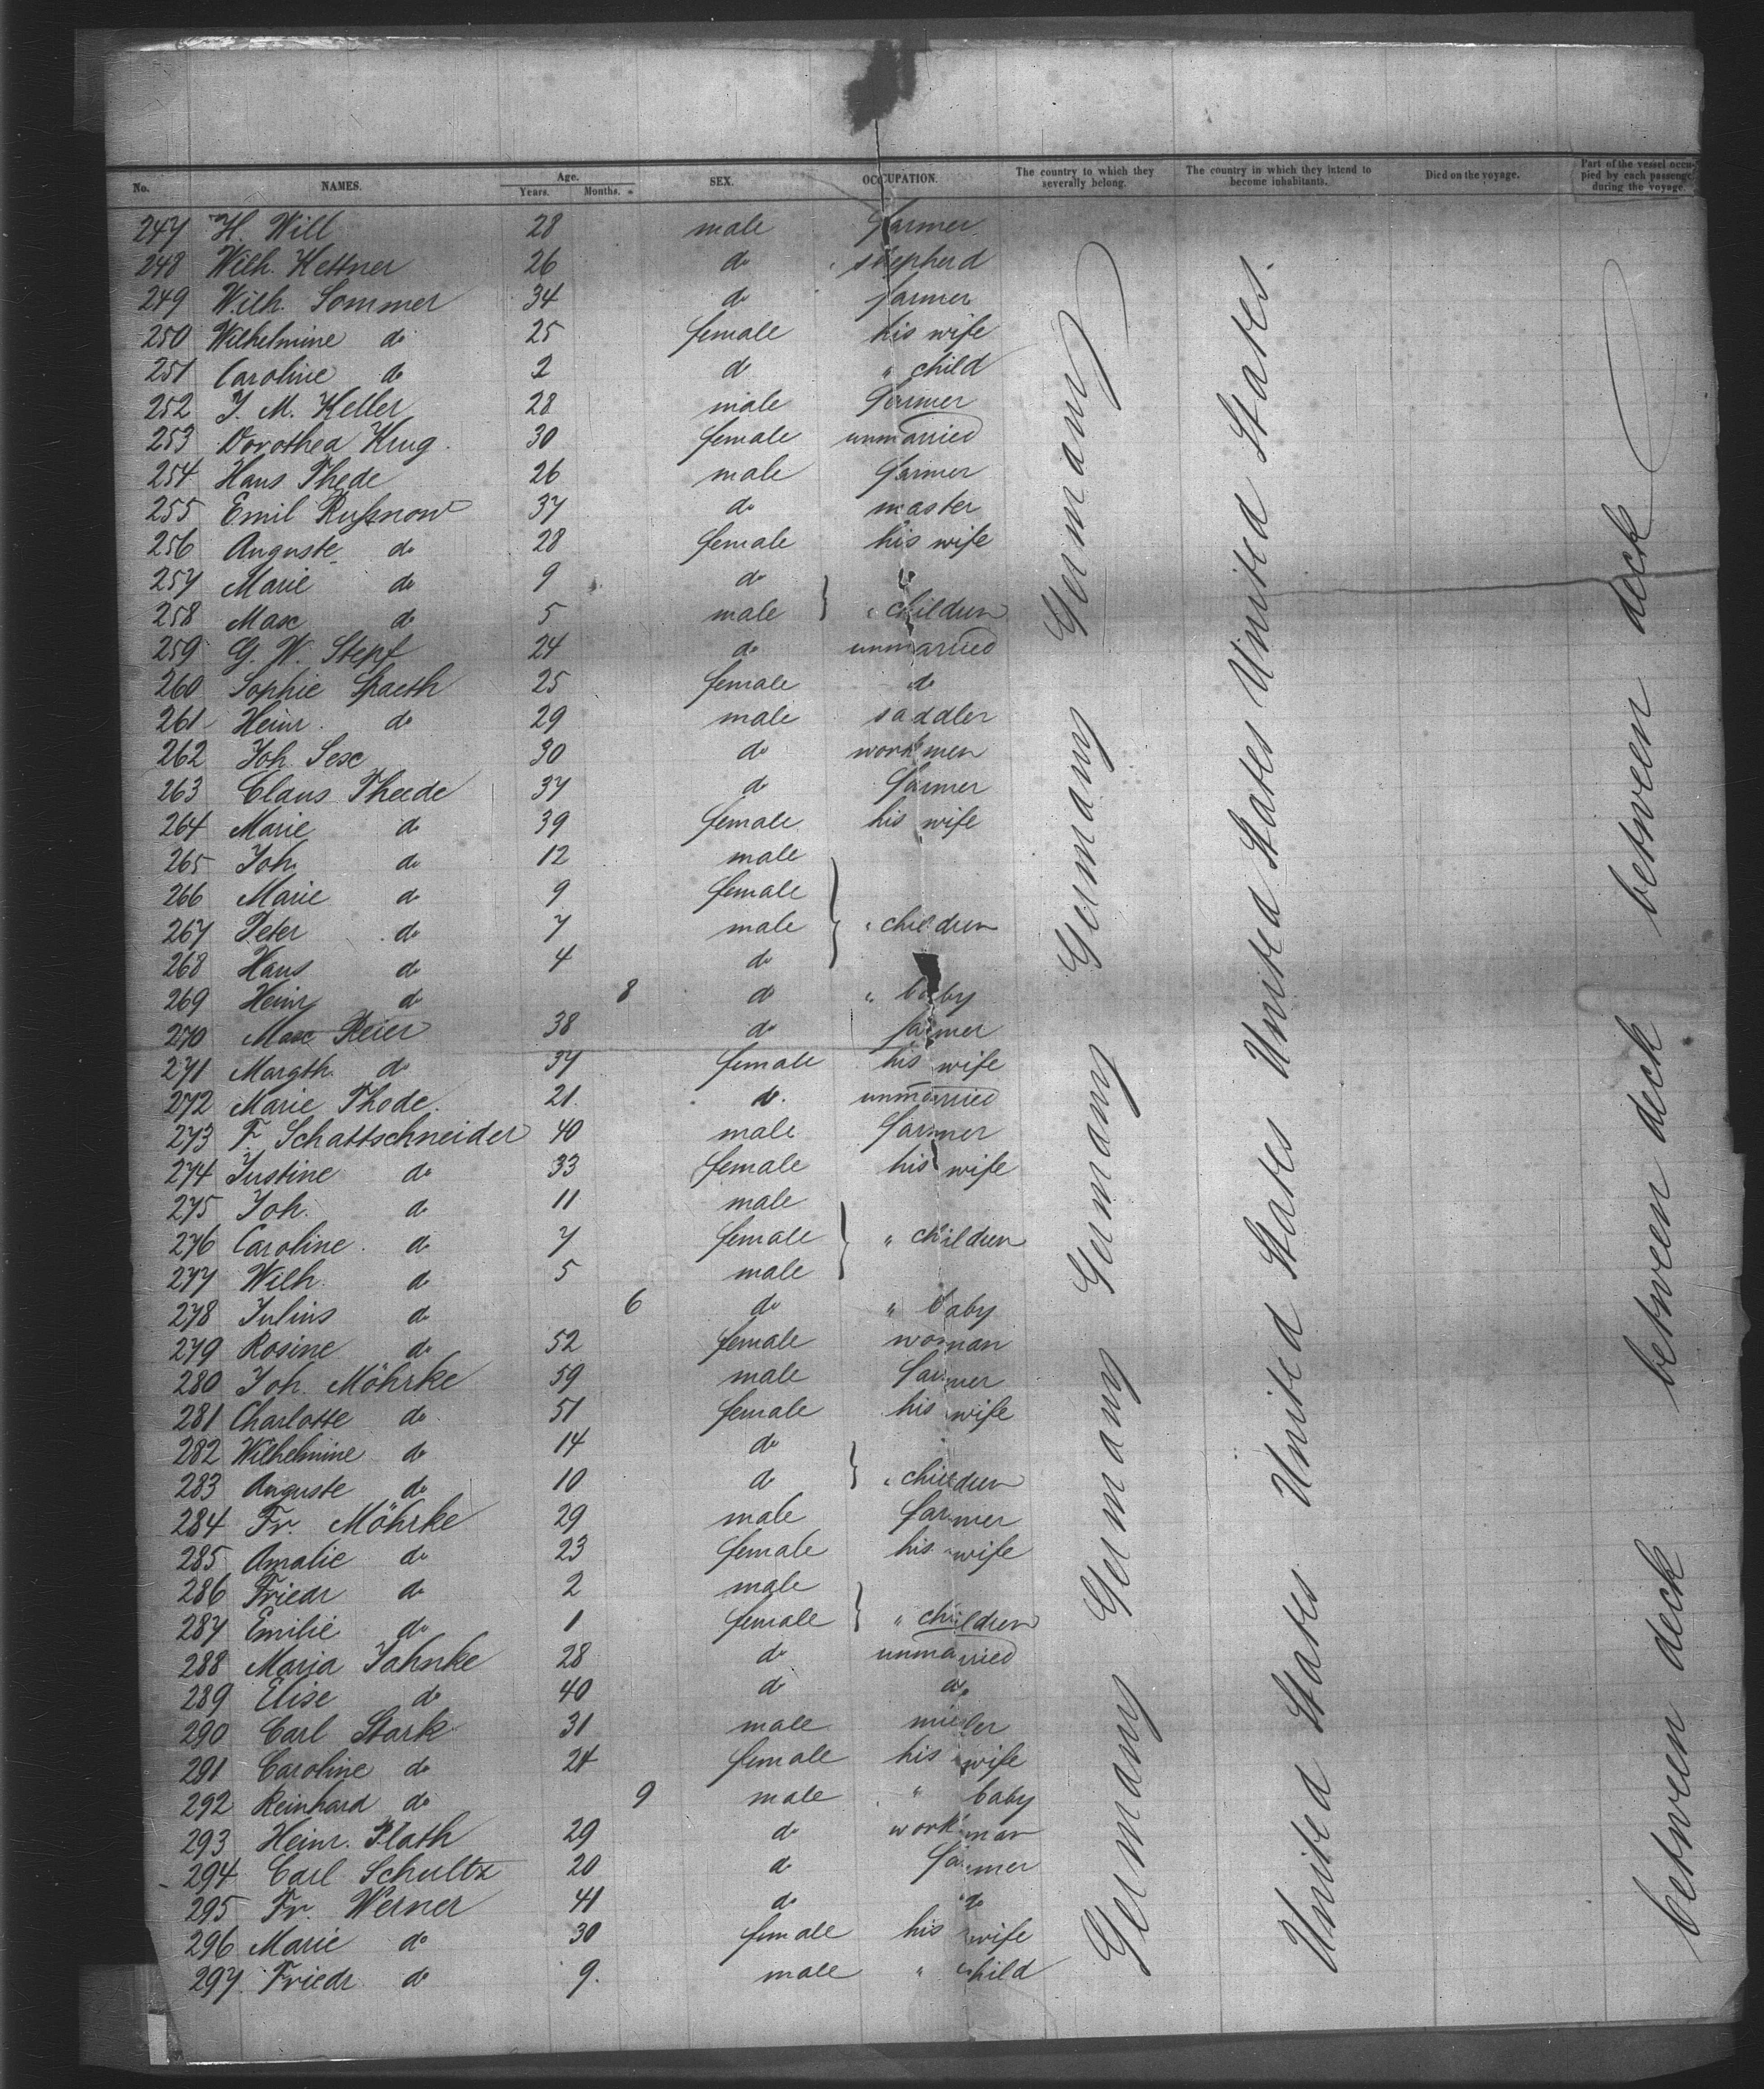 No. NAMES. Age. Years. Months. SEX. OCCUPATION. The country to which they severally belong. The country in which they intend to become inhabitants. Died on the voyage. Part of the vessel occupied by each passenger during the voyage.
247 H. Will 28 male farmer
248 Wilh. Kettner 26 do shepherd
249 Wilh. Sommer 34 do farmer
250 Wilhelmine do 25 female his wife
251 Caroline do 2 do " child
252 J. M. Keller 28 male farmer
253 Dorothea Krug 30 female unmarried
254 Hans Thede 26 male farmer
255 Emil Rußnow 37 do master
256 Auguste do 28 female his wife
257 Marie do 9 do
258 Max do 5 male " children
259 G. W. Stepf 24 do unmarried
260 Sophie Spaeth 25 female do
261 Heinr. do 29 male saddler
262 Joh. Sex 30 do workmen
263 Claus Theede 37 do farmer
264 Marie do 39 female his wife
265 Joh. do 12 male
266 Marie do 9 female
267 Peter do 7 male " children
268 Hans do 4 do
269 Heinr do 8 do " baby
270 Max Reier 38 do farmer
271 Margth. do 37 female his wife
272 Marie Thode 21 do unmarried
273 F. Schattschneider 40 male farmer
274 Justine do 33 female his wife
275 Joh. do 11 male
276 Caroline do 7 female " children
277 Wilh. do 5 male
278 Julius do 6 do " baby
279 Rosine do 52 female woman
280 Joh. Möhrke 59 male farmer
281 Charlotte do 51 female his wife
282 Wilhelmine do 14 do
283 Auguste do 10 do " children
284 Fr. Möhrke 29 male farmer
285 Amalie do 23 female his wife
286 Friedr do 2 male
287 Emilie do 1 female " children
288 Maria Jahnke 28 do unmarried
289 Elise do 40 do do
290 Carl Stark 31 male miller
291 Caroline do 24 female his wife
292 Reinhard do 9 male " baby
293 Heinr. Plath 29 do workman
294 Carl Schultz 20 do farmer
295 Fr. Werner 41 do do
296 Marie do 30 female his wife
297 Friedr do 9 male " child
Germany Germany Germany Germany Germany
United States United States United States United States United States
between deck between deck between deck